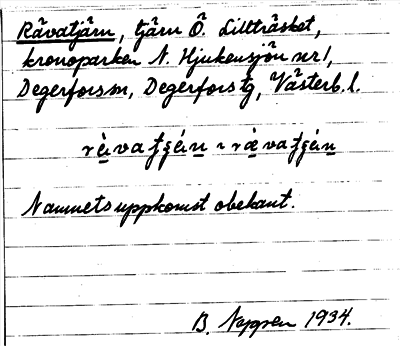 Råvatjärn, tjärn Ö. Lillträsket,
kronoparken N. Hjukensjön nr 1,
Degerforsm, Degerfors tg, Västerb. l.
Namnets uppkomst obekant.
B. 1934.